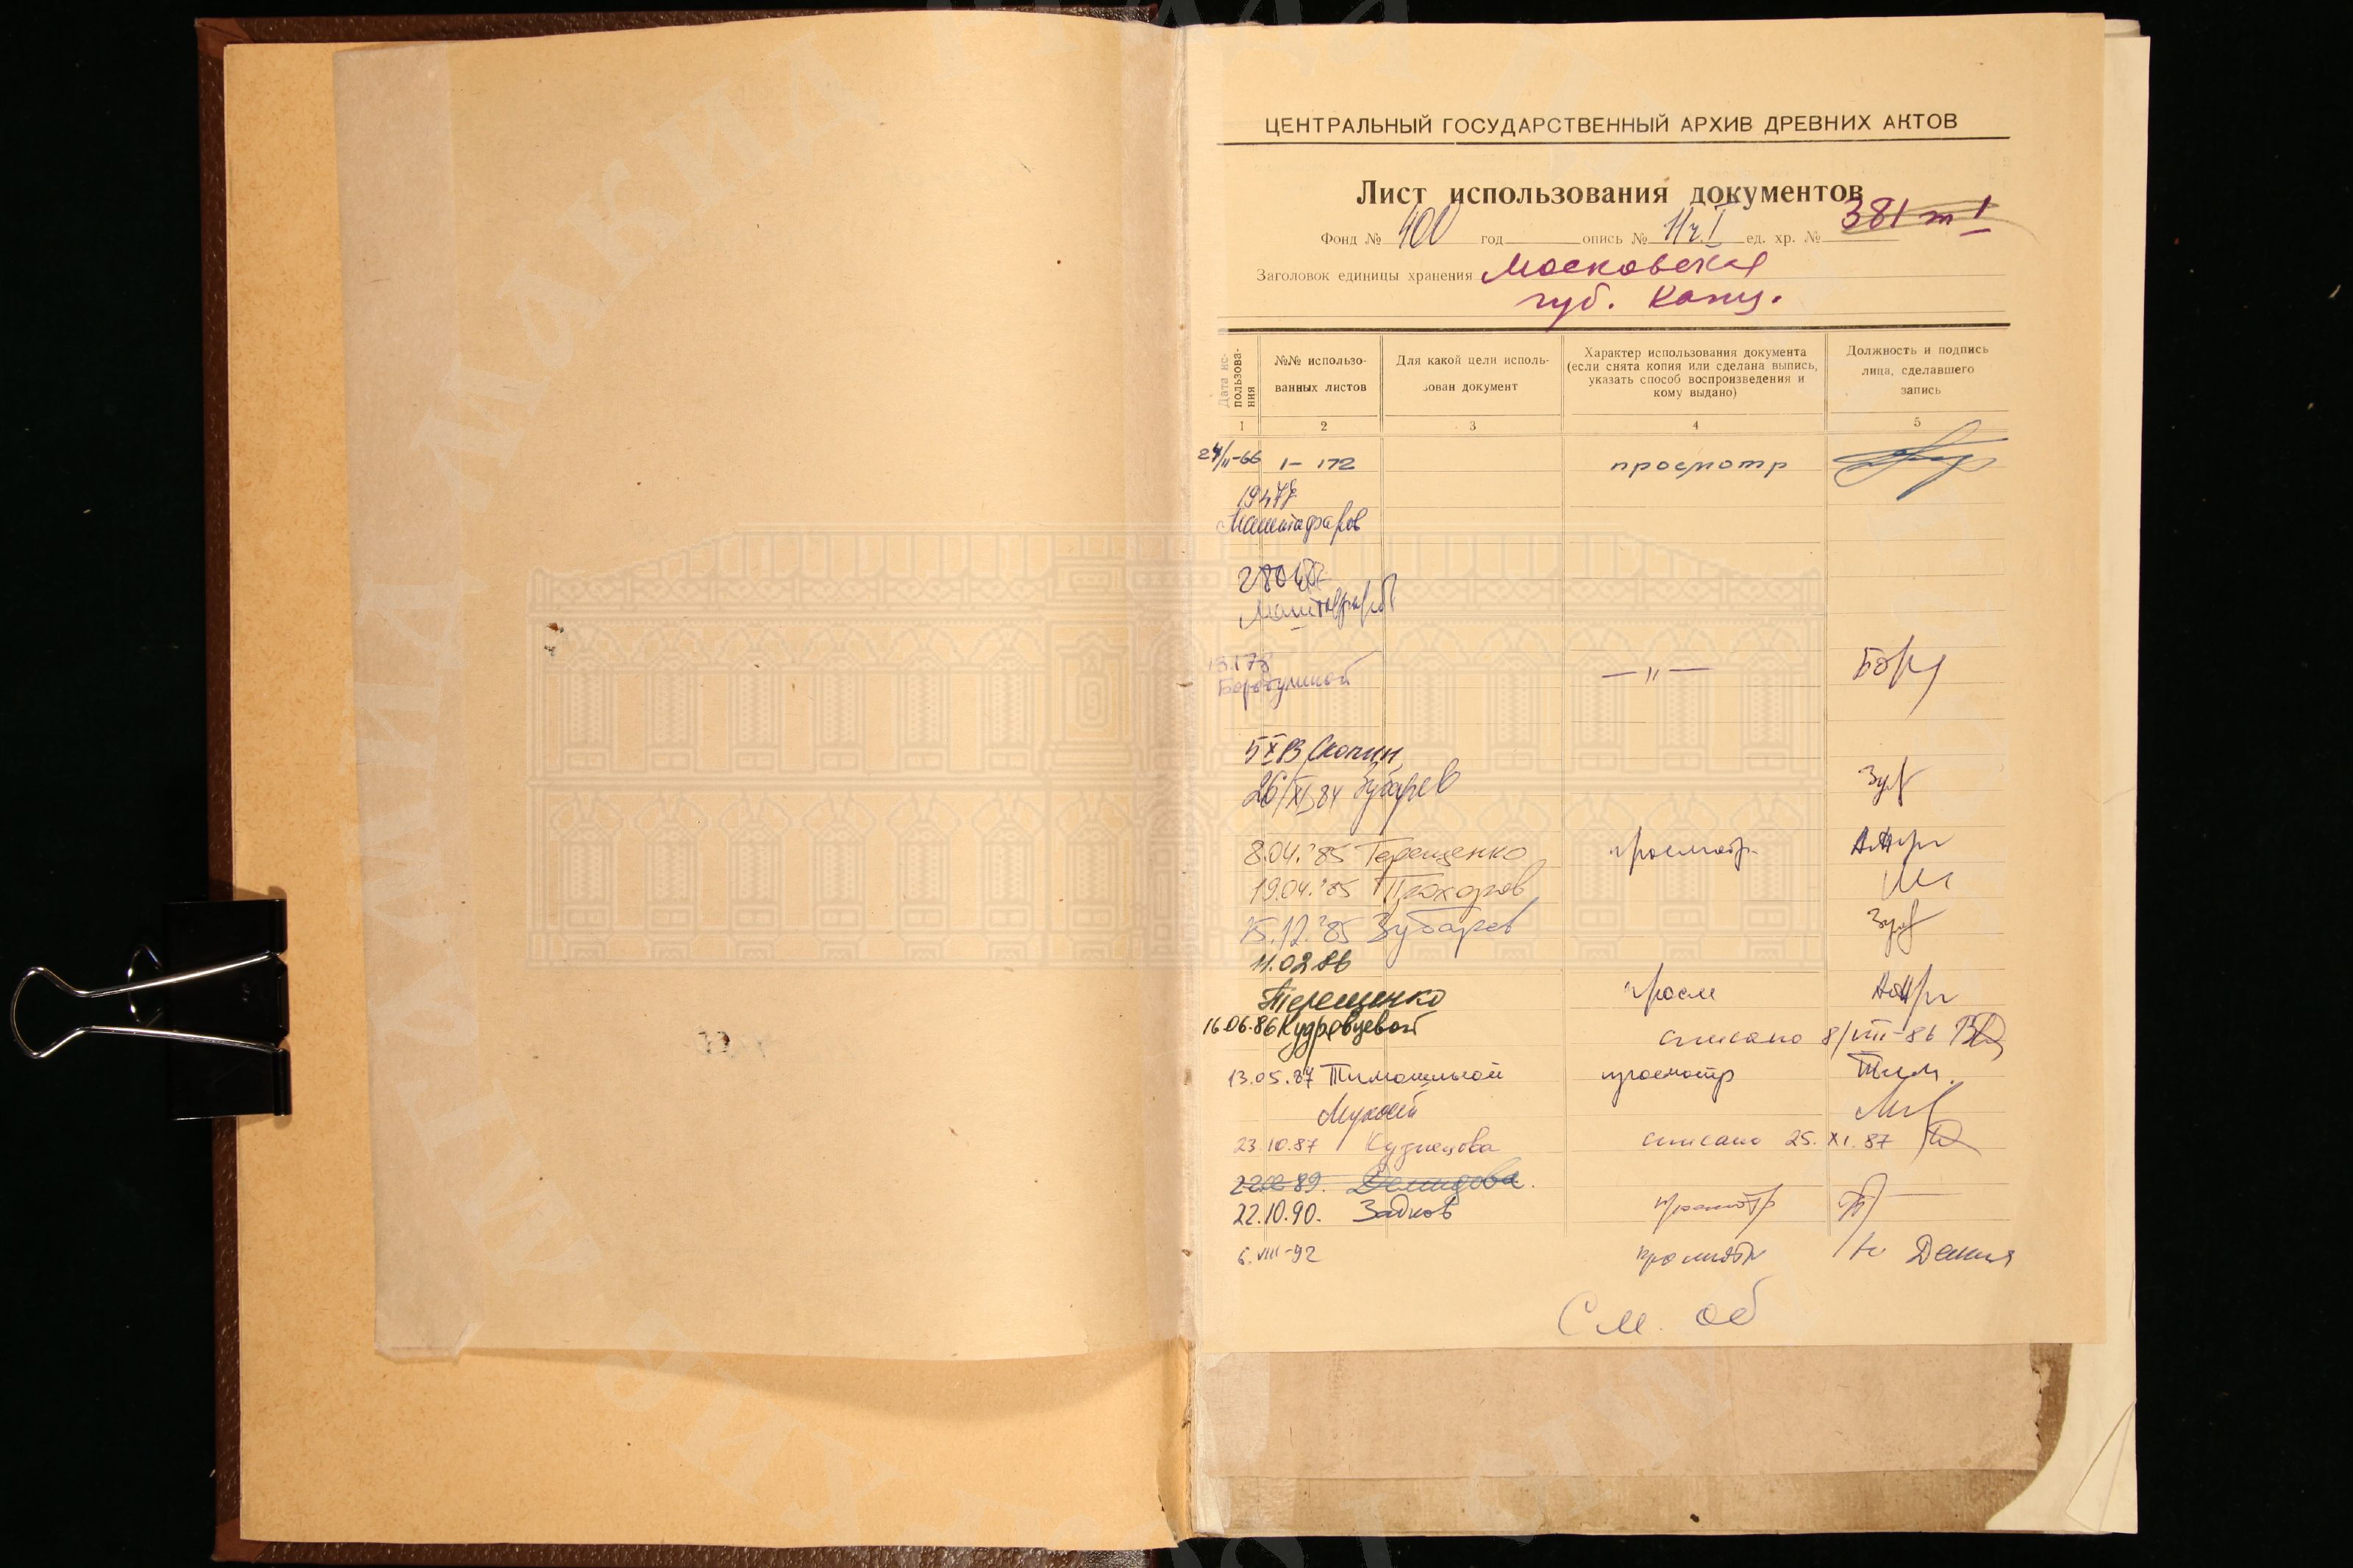 ЦЕНТРАЛЬНЫЙ ГОСУДАРСТВЕННЫЙ АРХИВ ДРЕВНИХ АКТОВ
Лист использования документов
Фонд № 400 год опись № 11 ч. I ед. хр. № 381 т 1
Заголовок единицы хранения Московская
губ. Канц.
Дата ис-
пользова-
ния
№№ использо-
ванных листов
Для какой цели исполь-
зован документ
Характер использования документа
(если снята копия или сделана выпись,
указать способ воспроизведения и
кому выдано)
Должность и подпись
лица, сделавшего
запись
1 2 3 4 5
24/II-66 1-172 просмотр
Маштафаров
Маштафаров
Бородулиной — „ — Бор
Скопин
26/XI 84 Зубарев Зуб
8.04.'85 Терещенко просмотр
19.04.'85 Прохоров
15.12.'85 Зубарев Зуб
11.02.86
Терещенко просм
16.06.86 Кудрявцевой списано 8/VIII-86
13.05.87 Тимошиной просмотр Тим.
23.10.87 Кузнецова списано 25.XI.87
89. Демидова.
22.10.90. Задков просмотр
6.VIII-92 просмотр
См. об